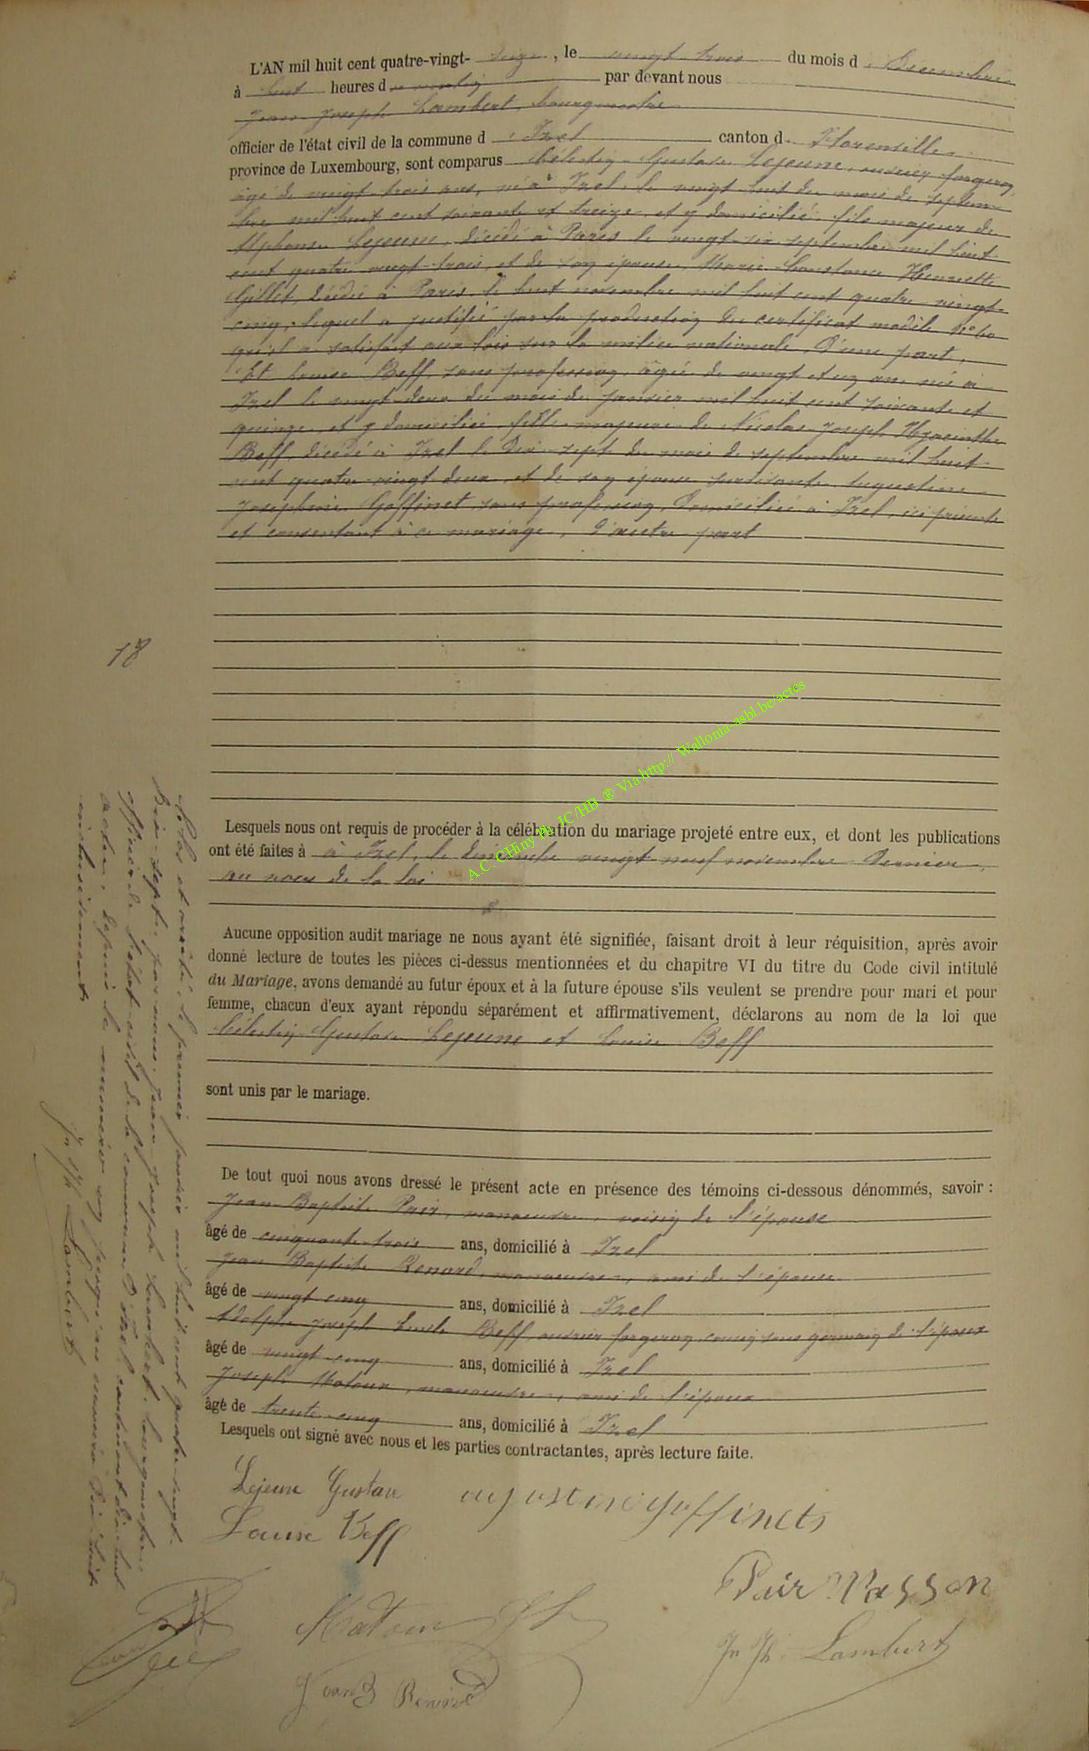 L'AN mil huit cent quatre-vingt- seize, le vingt trois du mois d e Décembre
à huit heures d u matin par devant nous
Jean Joseph Lambert, bourgmestre
officier de l'état civil de la commune d 'Izel canton d e Florenville
province de Luxembourg, sont comparus Célestin Gustave Lejeune, ouvrier forgeron
âgé de vingt trois ans, né à Izel, le vingt huit du mois de septem-
bre mil huit cent soixante et treize, et y domicilié, fils majeur de
Alphonse Lejeune, décédé à Paris le vingt-six septembre mil huit
cent quatre vingt-trois, et de son épouse, Marie Constance Henriette
Gillet, décédée à Paris, le huit novembre mil huit cent quatre vingt-
cinq; lequel a justifié par la production du certificat modèle No 60
qu'il a satisfait aux lois sur la milice nationale. D'une part,
Et Louise Beff, sans profession, âgée de vingt et un ans, née à
Izel le vingt-deux du mois de janvier mil huit cent soixante et
quinze, et y domiciliée, fille majeure de Nicolas Joseph Hyacinthe
Beff, décédé à Izel le dix-sept du mois de septembre mil huit
cent quatre-vingt deux, et de son épouse survivante Augustine
Josephine Goffinet, sans profession, domiciliée à Izel, ici présente
et consentant à ce mariage, d'autre part
18
Lesquels nous ont requis de procéder à la célébration du mariage projeté entre eux, et dont les publications
ont été faites à à Izel, le dimanche vingt neuf novembre dernier,
au voeu de la loi
Aucune opposition audit mariage ne nous ayant été signifiée, faisant droit à leur réquisition, après avoir
donné lecture de toutes les pièces ci-dessus mentionnées et du chapitre VI du titre du Code civil intitulé
du Mariage, avons demandé au futur époux et à la future épouse s'ils veulent se prendre pour mari et pour
femme, chacun d'eux ayant répondu séparément et affirmativement, déclarons au nom de la loi que
Célestin Gustave Lejeune et Louise Beff
sont unis par le mariage.
De tout quoi nous avons dressé le présent acte en présence des témoins ci-dessous dénommés, savoir :
Jean Baptiste Pair, manoeuvre, voisin de l'épouse
âgé de cinquante-trois ans, domicilié à Izel
Jean Baptiste Renard, manoeuvre, ami de l'épouse
âgé de vingt cinq ans, domicilié à Izel
Adolphe Joseph Beff ouvrier forgeron, cousin sous germain de l'époux
âgé de vingt-cinq ans, domicilié à Izel
Joseph Matoux, manoeuvre, ami de l'époux
âgé de trente-cinq ans, domicilié à Izel
Lesquels ont signé avec nous et les parties contractantes, après lecture faite.
Lejeune Gustave
augustine goffinets
Louise Beff
Pair Masson
Jn Jh Lambert
Jean B Renard
premier janvier mil huit cent quatre-vingt-
dix-sept, par nous, Jean Joseph Lambert, bourgmestre,
officier de l'état civil de la commune d'Izel, contenant dix huit
actes, depuis le numéro un jusqu'au numéro dix huit
inclusivement
Jn Jh Lambert
A.C. CHiny Ph. JC/HB ® Via http:// Wallonia-asbl.be/actes